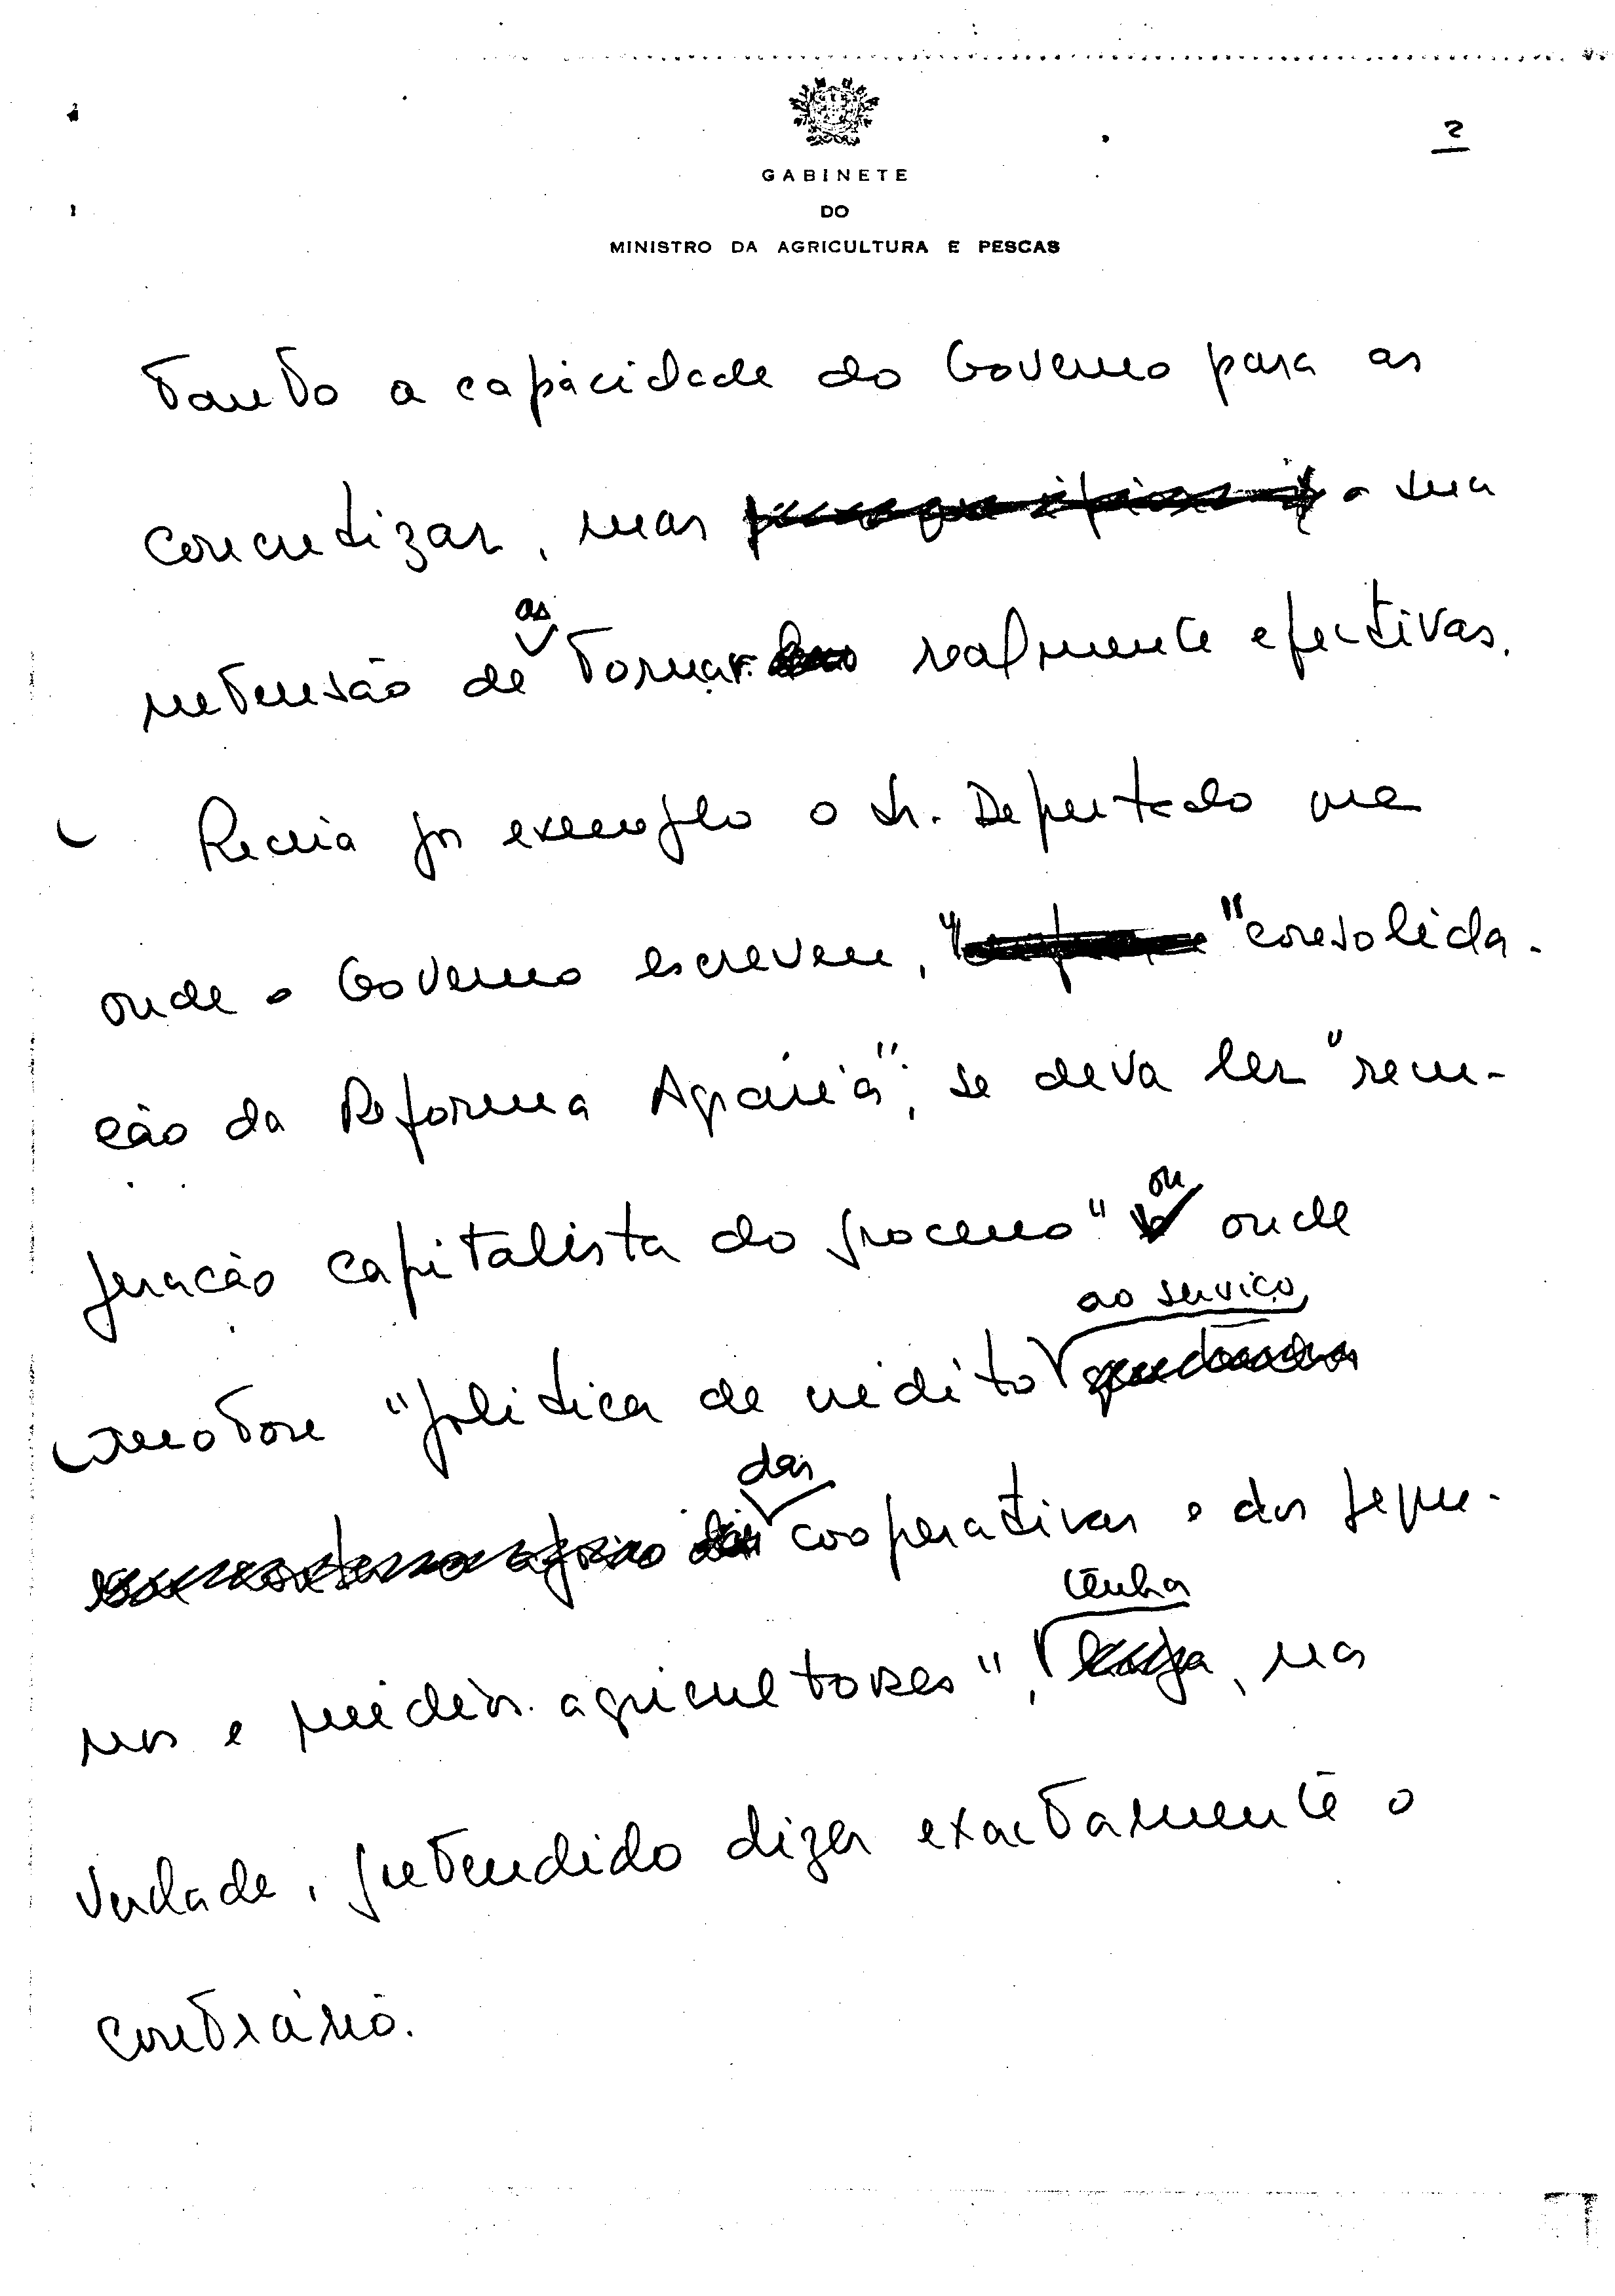 2
GABINETE
DO
MINISTRO DA AGRICULTURA E PESCAS
tanto a capacidade do Governo para as
concretizar, mas a sua
intensão de as tornar realmente efectivas.
Receia por exemplo o Sr. Deputado que
onde o Governo escreveu, "consolida-
ção da Reforma Agrária", se deva ler "recu-
peração capitalista do processo" ou onde
anotou "política de crédito ao serviço
das cooperativas e dos peque-
nos e médios agricultores", tenha, na
verdade, pretendido dizer exactamente o
contrário.